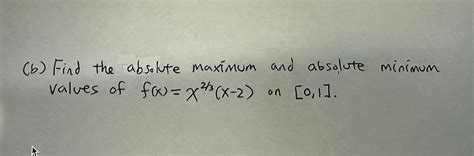 (b) Find the absolute maximum and absolute minimum
values of f(x) = x^{2/3}(x-2) on [0,1].